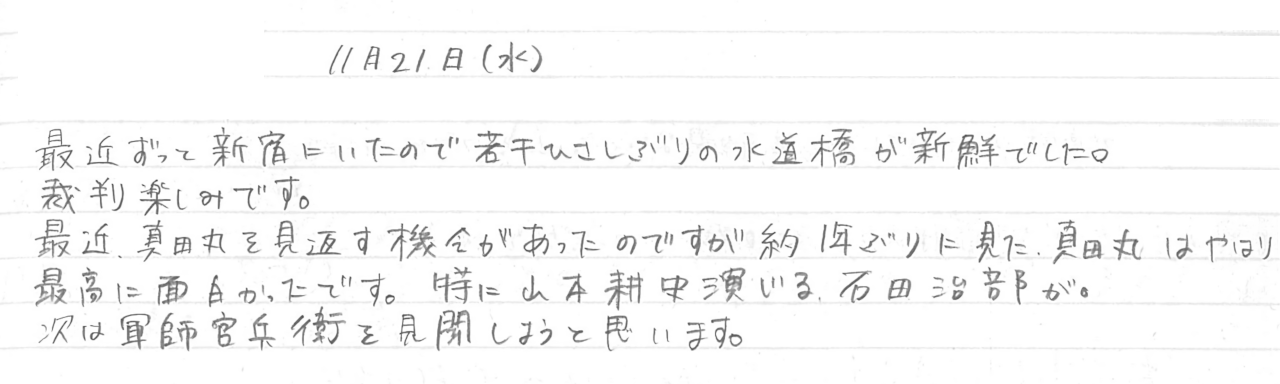 11月21日(水)
最近ずっと新宿にいたので若干ひさしぶりの水道橋が新鮮でした。
裁判楽しみです。
最近、真田丸を見返す機会があったのですが約1年ぶりに見た、真田丸はやはり
最高に面白かったです。特に山本耕史演じる、石田治部が。
次は軍師官兵衛を見聞しようと思います。